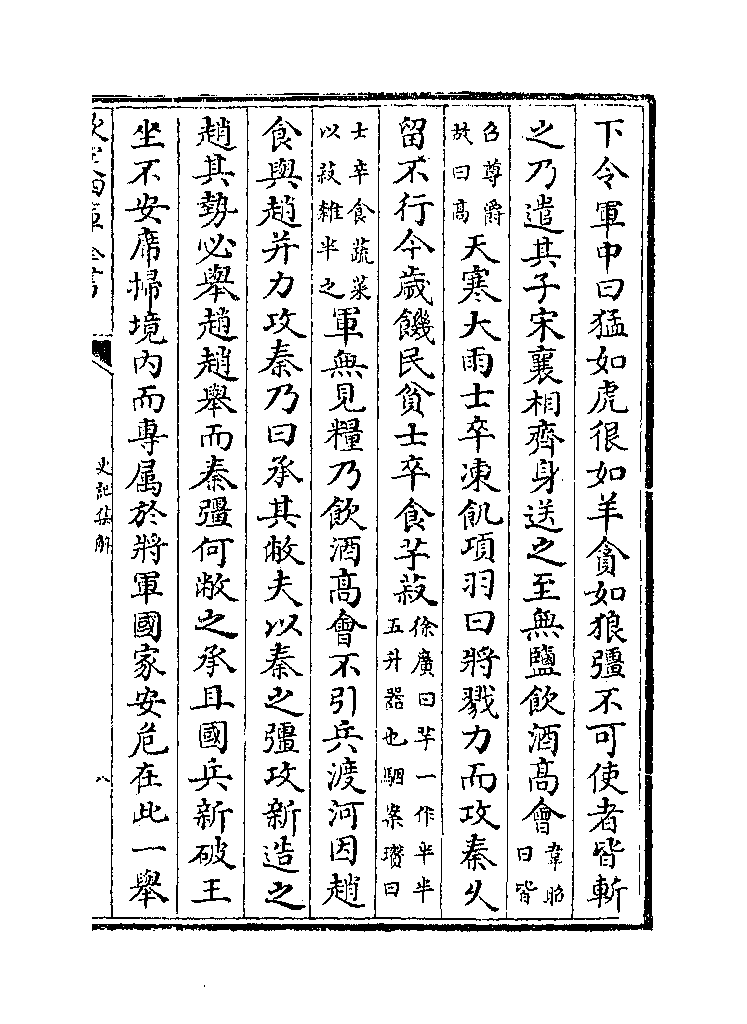 下令軍中曰猛如虎很如羊貪如狼彊不可使者皆斬
之乃遣其子宋襄相齊身送之至無鹽飲酒高會韋昭曰皆
召尊爵故曰高天寒大雨士卒凍飢項羽曰將戮力而攻秦乆
留不行今歲饑民貧士卒食芋菽徐廣曰芋一作半半五升器也駰案瓚曰
士卒食蔬菜以菽雜半之軍無見糧乃飲酒高會不引兵渡河因趙
食與趙并力攻秦乃曰承其敝夫以秦之彊攻新造之
趙其勢必舉趙趙舉而秦彊何敝之承且國兵新破王
坐不安席掃境內而專属於將軍國家安危在此一舉
欽定四庫全書
史記集解
八